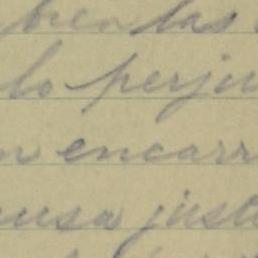 bien las
lo perju
n encarr
ausa justa